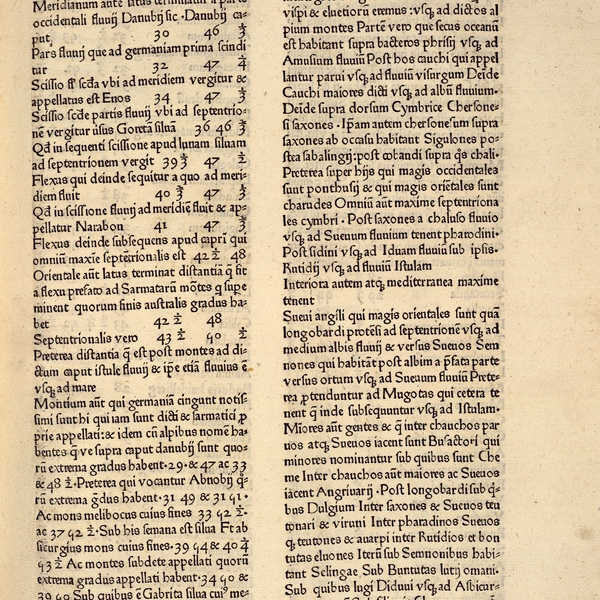 Meridianum aūte latus terminatur a parte
occidentali fluuij Danubij sic . Danubij ca-
put 30 46 ⅔
Pars fluuij que ad germaniam prima scindi
tur 32 47 ¼
Scissio sꝫ scḋa vbi ad meridiem vergitur &
appellatus est Enos 34 47 ⅓
Scissio scḋe partis fluuij vbi ad septentrio-
nē vergitur usus Goretā siluā 36 46 ⅔
Qḋ in sequenti scissione apud lunam siluam
ad septentrionem vergit 39 ⅓ 47 ½
Flexus qui deinde sequitur a quo ad meri-
diem fluit 40 ⅔ 47 ⅓
Qḋ in scissione fluuij ad meridiē fluit & ap-
pellatur Narabon 41 47 ⅓
Flexus deinde subsequens apud caprū qui
omniū maxīe septētrionalis est 42 ½ 48
Orientale aūt latus terminat distantia q̄ fit
a flexu prefato ad Sarmatarū mōtes q supe
minent quorum finis australis gradus ha-
bet 42 ½ 48
Septentrionalis vero 43 ½ 90 ½
Preterea distantia q̄ est post montes ad di-
ctum caput istule fluuij & ip̄e etiā fluuius ē
vsqꝫ ad mare
Montium aūt qui germaniā cingunt notis-
simi sunt hi qui iam sunt dicti & sarmatici ꝓ
prie appellati: & idem cū alpibus nomē ha-
bentes q̄ ve supra caput danubij sunt quo-
rū extrema gradus habent · 29 · & 47 ac 33
& 48 ½ · Preterea qui vocantur Abnobij q̄-
rū extrema ḡdus habent · 31 49 & 31 91 ·
Ac mons melibocus cuius fines 33 92 ½ ·
ac 37 92 ½ · Sub his semana est silua Et ab
sicurgius mons cuius fines · 39 94 & 40 ⅔
93 ½ Ac montes subdete appellati quorū
extrema gradus appellati habent · 34 90 &
39 90 Sub quibus ē Gabrita silua cui⁹ me-
vispi & eluetiorū eremus : vsqꝫ ad dictos al
pium montes Partē vero que secus oceanū
est habitant supra bacteros phrisij vsqꝫ ad
Amusium fluuiū Post hos cauchi qui appel
lantur parui vsqꝫ ad fluuiū visurgum Deīde
Cauchi maiores dicti vsqꝫ ad albū fluuium ·
Deīde supra dorsum Cymbrice Chersone-
si saxones · Ip̄am autem chersonesum supra
saxones ab occasu habitant Sigulones po-
stea sabalingij: post cobandi supra q̄s chali ·
Preterea super hijs qui magis occidentales
sunt ponthusij & qui magis oriētales sunt
charudes Omniū aūt maxime septentriona
les cymbri · Post saxones a chaluso fluuio
vsqꝫ ad Sueuum fluuium tenent pharodini ·
Post sidini vsqꝫ ad Iduam fluuiū sub ipsis ·
Rutidij vsqꝫ ad fluuiū Istulam
Interiora autem atqꝫ mediterranea maxime
tenent
Sueui angili qui magis orientales sunt quā
longobardi protēsi ad septentrionē vsqꝫ ad
medium albis fluuij & versus Sueuos Sem
nones qui habitāt post albim a p̄fata parte
versus ortum vsqꝫ ad Sueuum fluuiū Prete-
rea ꝓtenduntur ad Mugotas qui cetera te
nent q̄ inde subsequuntur vsqꝫ ad Istulam ·
Miores aūt gentes & q̄ inter chauchos par
uos atqꝫ Sueuos iacent sunt Busactori qui
minores nominantur sub quibus sunt Che
me Inter chauchos aūt maiores ac Sueuos
iacent Angriuarij · Post longobardi sub q̄-
bus Dulgium Inter saxones & Sueuos teu
tonari & viruni Inter pharadinos Sueuos
q̄ teutones & auarpi inter Rutidios et bon
tutas eluones Iterū sub Semnonibus habi-
tant Selingae Sub Buntutas lutij omani ·
Sub quibus lugi Diduui vsqꝫ ad Asbicur-